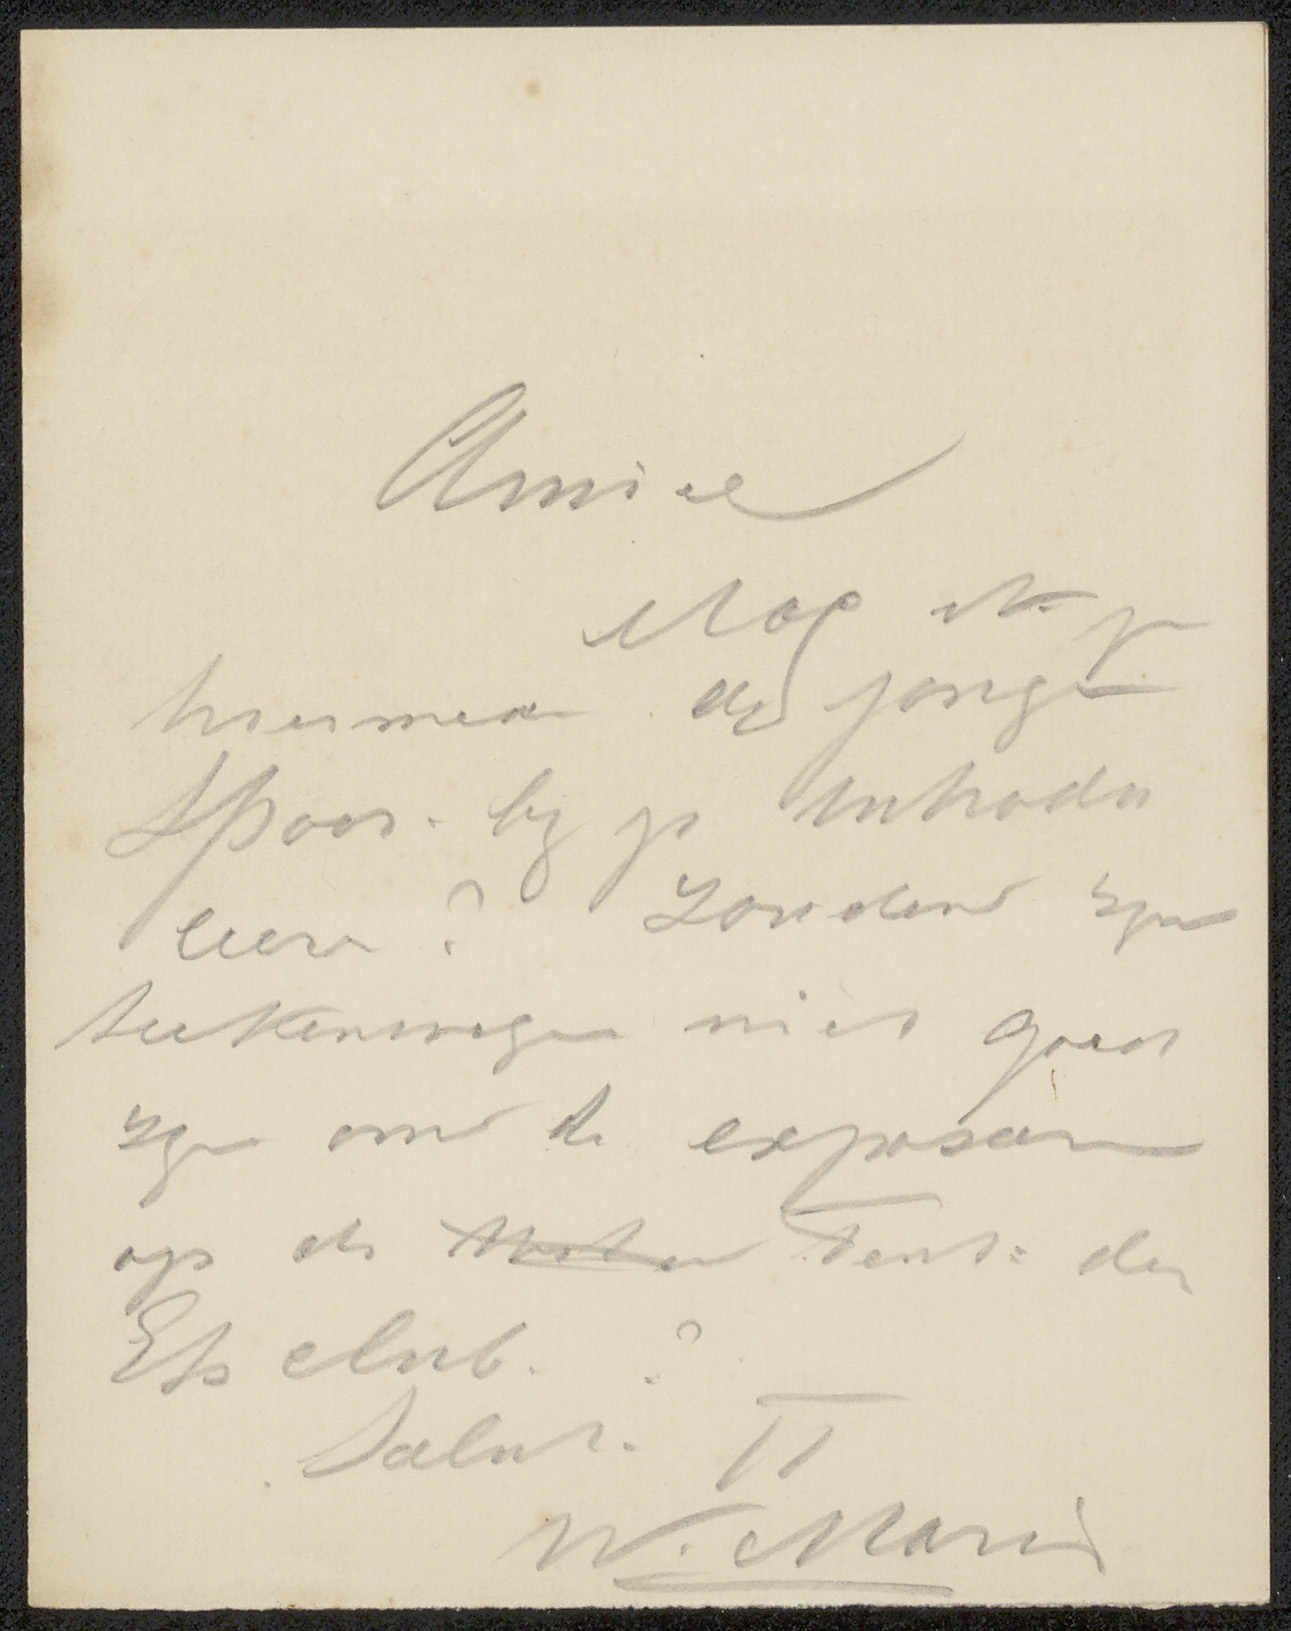 Amice
Mag ik je
hiermee de jonge
Spoor. bij je introdu
ceere? Zouden zijn
teekeningen niet goed
zijn om te exposeeren
op de Tent: der
Ets club. ?
Salut. TT
W. Maris